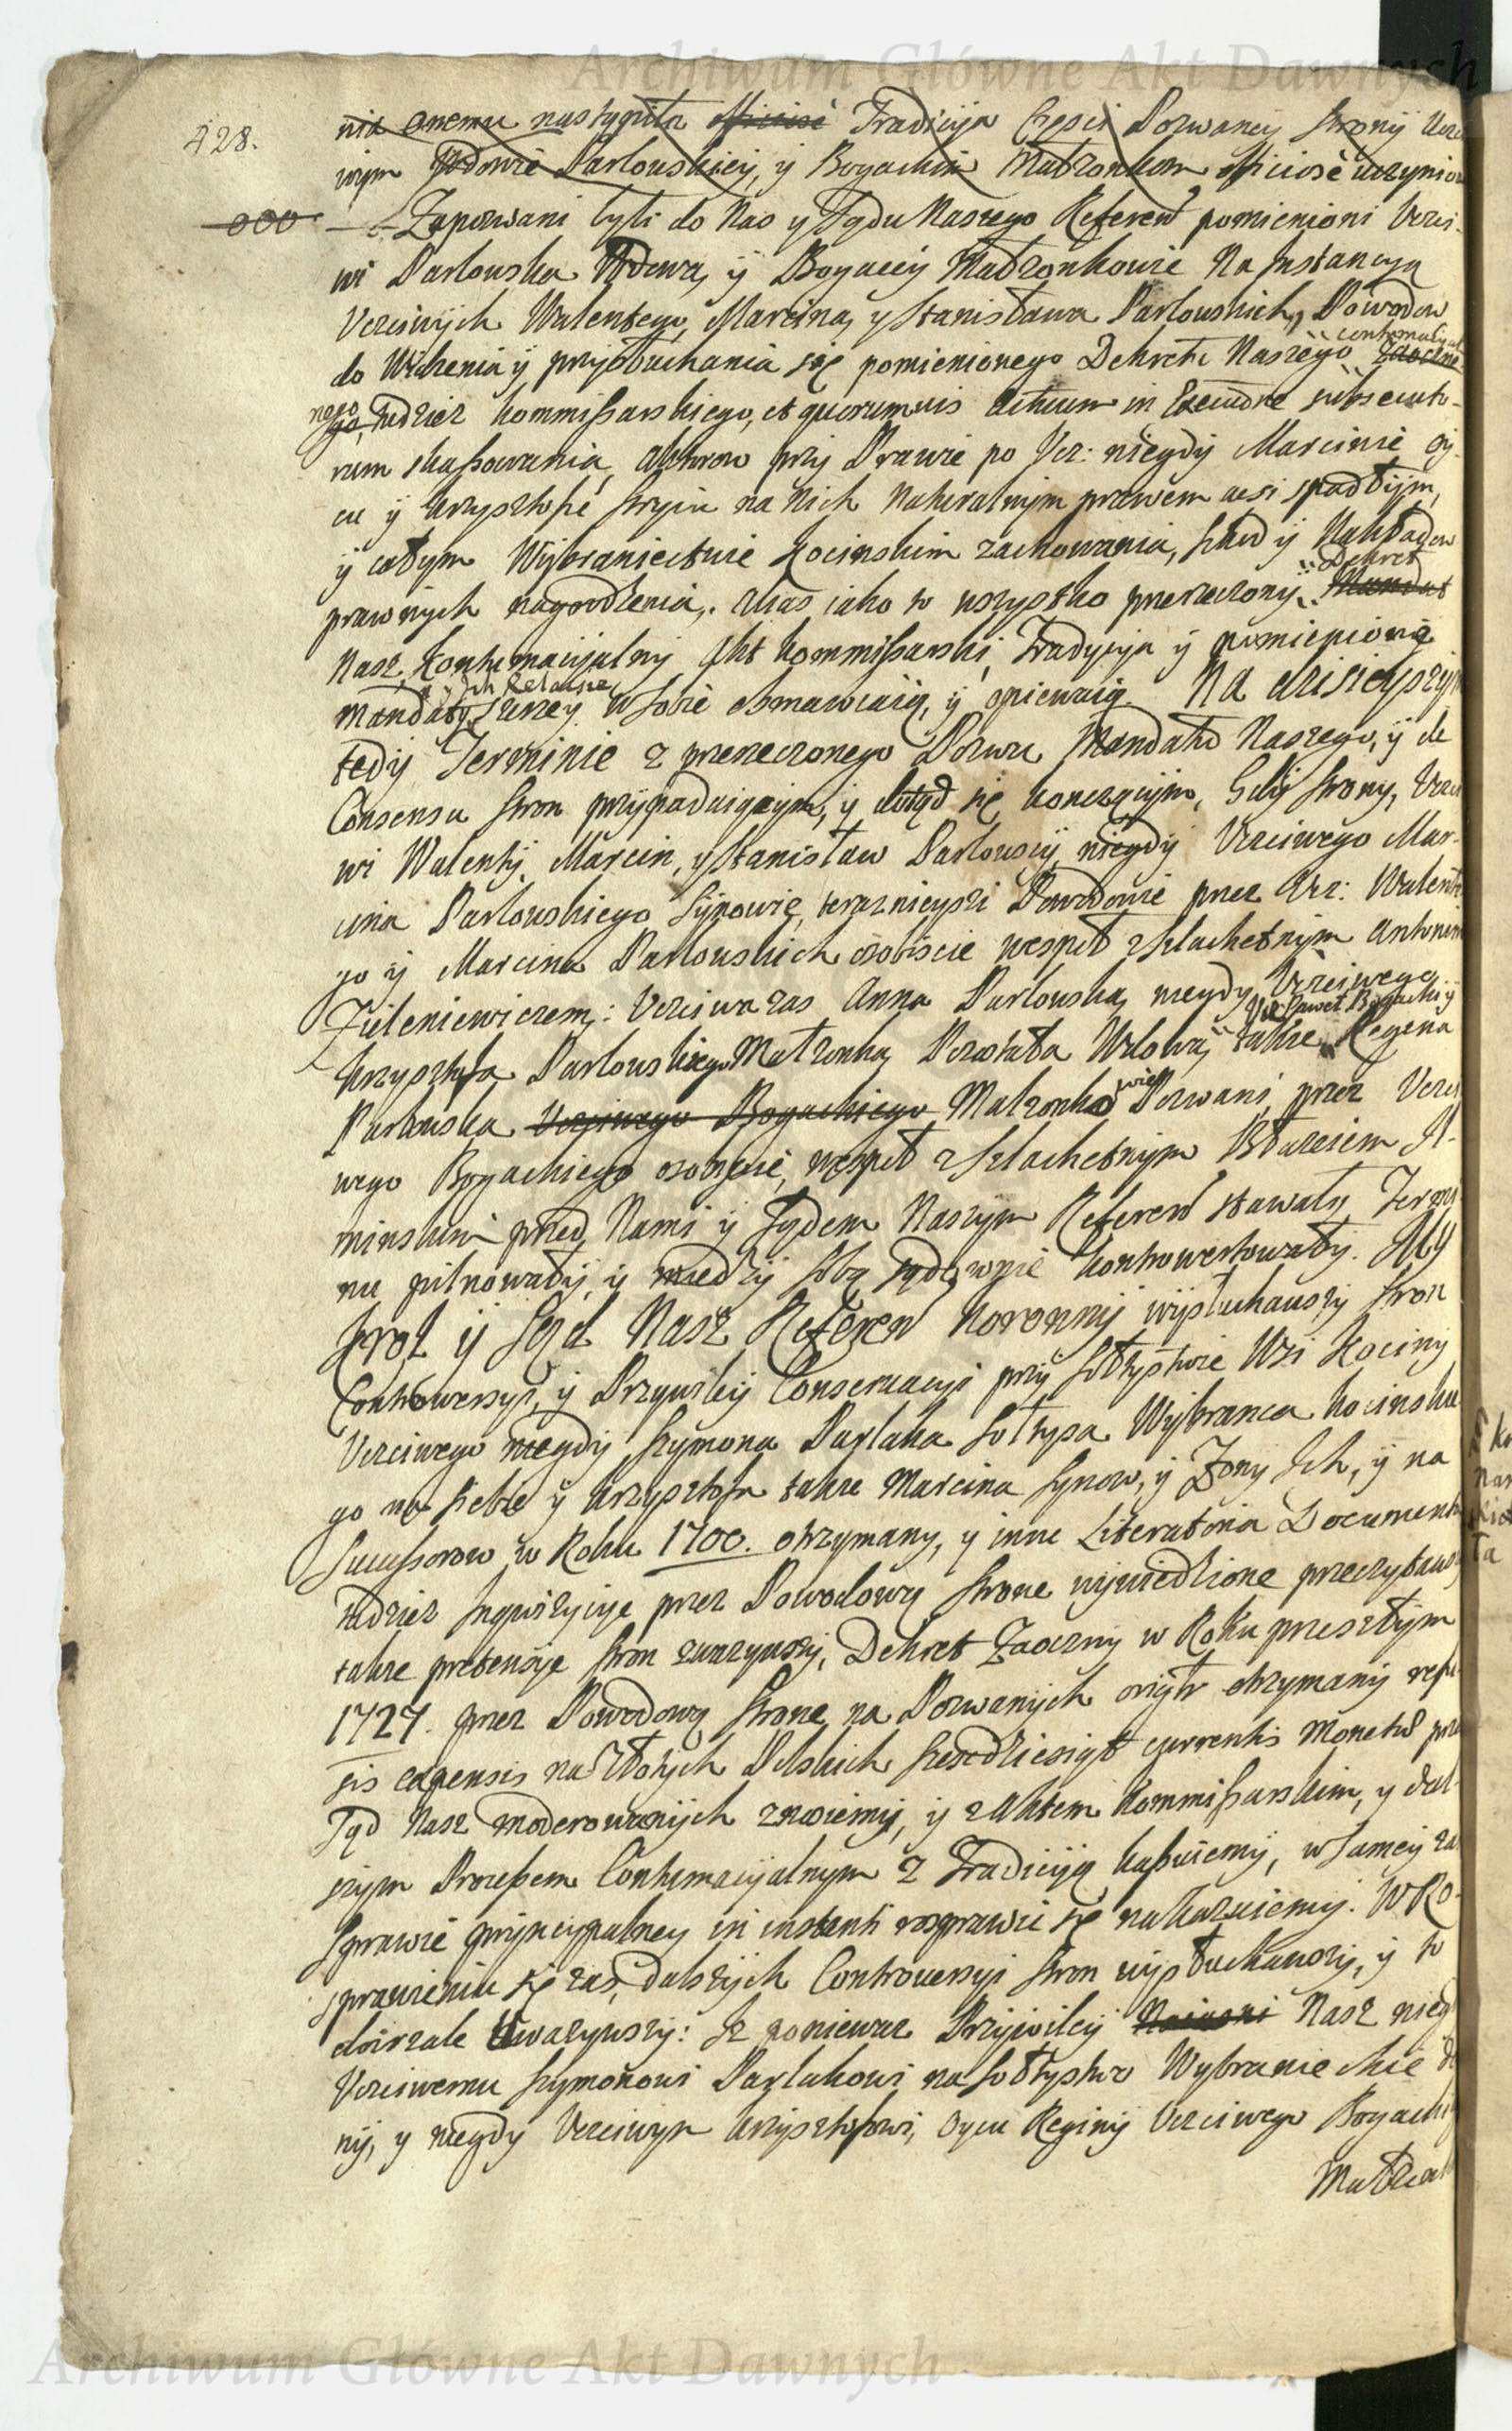 Archiwum Główne Akt Dawnych
428.
nia onemu nastąpiła Tradicija Części Pozwaney Strony Ucz
wym Wdowie Pawłowskiey, y Bogackim Małżonkom uczynion
000 Zapozwani byli do Nas y Sądu Naszego Referen pomienioni Uczci-
wi Pawłowska Wdowa, y Bogaccy Małżonkowie Na Instancyą
Uczciwych Walentego, Marcina, y Stanisława Pawłowskich, Powodow
contumacyal
do Widzenia y przysłuchania się pomienionego Dekretu Naszego Zaoczne-
nego, tudziesz kommissarskiego, et quorumvis actuum in subsecuto-
rum skassowania, Aktorow przy Prawie po Ucz: niegdy Marcinie oy-
cu y Krzysztofie Stryiu na Nich naturalnym prawem spadłym,
y całym Wybraniectwie Kocinskim zachowania, szkod y Nakładow
Dekret
prawnych nagrodzenia. Zas iako to wszystko przerzeczony Mandat
Nasz Kontumacyalny Akt kommissarski, Tradycyja y pomienione
Ich Relacye
Mandaty szerzey w sobie obmawiaią, y opiewaią. Na dzisieyszym
tedy Terminie z przerzeczonego Pozwu Mandatu Naszego, y de
Consensu stron przypadaiącym, y dotąd się kończącym, Gdy strony, Uczci
wi Walenty, Marcin, y Stanisław Pawłowscy, niegdy Uczciwego Mar-
cina Pawłowskiego Synowie, teraznieyszi Powodowie przez Ucz: Walente
go y Marcina Pawłowskich osobiscie wespół z Szlachetnym Antonim
Zieleniewiczem: Uczciwa zas Anna Pawłowska, niegdy Uczciwego
Ucz: Paweł Bogacki y
Krzysztofa Pawłowskiego Małżonka Pozostała Wdowa, także Regina
Pawłowska Uczciwego Bogackiego Małżonkowie Pozwani, przez Uczci
wego Bogackiego osobiscie, wespół z Szlachetnym
przed Nami y Sądem Naszym Referen stawały, Termi
nu pilnowały, y miedzy sobą sądownie kontrowertowały. My
Krol y Sąd Nasz Referen Koronny wysłuchawszy stron
Controwersyi, y Przywiley Conserwacyi przy Sołtystwie Wsi Kociny
Uczciwego niegdy Szymona Pawlaka Sołtysa Wybranca Kocinskie
go na siebie y Krzysztofa także Marcina Synow, y Zony Ich, y na
Successorow w Roku 1700. otrzymany, y inne Literatoria Documenta
tudziesz Inqwizycye przez Powodową stronę wywiedzione przeczytawszy
także pretensye stron zwazywszy, Dekret Zaoczny w Roku przeszłym
1727. przez Powodową stronę na Pozwanych otrzymany refu-
sis expensis na Złotych Polskich szescdziesiąt currentis Monetae prze
Sąd Nasz moderowanych znosiemy, y z Aktem Kommissarskim, y dal-
szym Processem Contumacyalnym z Tradicyą kassuiemy, w samey za
sprawie pryncypalney in instanti rosprawić się nakazuiemy. W Ro-
sprawieniu się zas, dalszych Controwersyi stron wysłuchawszy, y to
doirzale Uwazywszy: Iz poniewaz Przywiley Nasz niegdy
Uczciwemu Szymonowi Pawlakowi na Sołtystwo Wybranieckie
ny, y niegdy Uczciwym Krzysztofowi, oycu Reginy Uczciwego Bogackiego
Małżon
Archiwum Główne Akt Dawnych